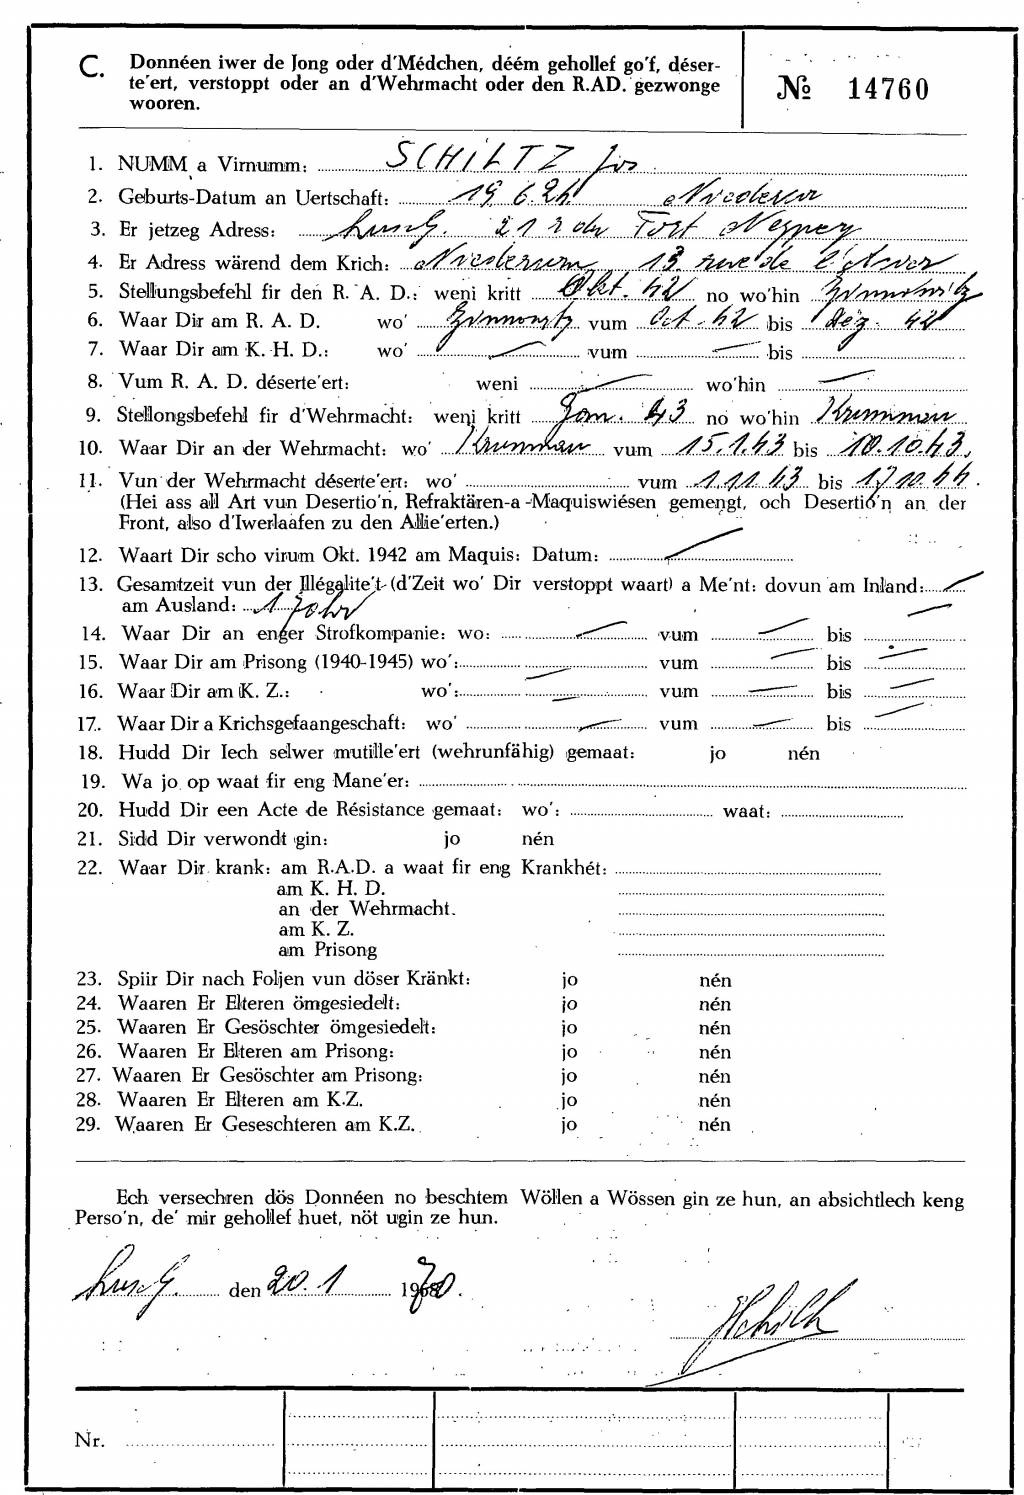 C. Donnéen iwer de Jong oder d'Médchen, déém gehollef go'f, déser-
te'ert, verstoppt oder an d'Wehrmacht oder den R.AD. gezwonge
wooren.
№ 14760
1. NUMM a Virnumm: SCHILTZ Jos
2. Geburts-Datum an Uertschaft: 19.6.24
3. Er jetzeg Adress: Luxbg. 21 r du Fort
4. Er Adress wärend dem Krich: 13. rue de
5. Stellungsbefehl fir den R. A. D.: weni kritt Okt. 42 no wo'hin
6. Waar Dir am R. A. D. wo' vum Oct. 42 bis Dez. 42
7. Waar Dir am K. H. D.: wo' vum bis
8. Vum R. A. D. déserte'ert: weni wo'hin
9. Stellongsbefehl fir d'Wehrmacht: weni kritt Jan. 43 no wo'hin
10. Waar Dir an der Wehrmacht: wo' vum 15.1.43 bis 10.10.43.
11. Vun der Wehrmacht déserte'ert: wo' vum 1.11.43 bis 17.10.44.
(Hei ass all Art vun Desertio'n, Refraktären-a-Maquiswiésen gemengt, och Desertio'n an der
Front, also d'Iwerlaafen zu den Allie'erten.)
12. Waart Dir scho virum Okt. 1942 am Maquis: Datum:
13. Gesamtzeit vun der Illégalite't (d'Zeit wo' Dir verstoppt waart) a Me'nt: dovun am Inland:
am Ausland: 1 Johr
14. Waar Dir an enger Strofkompanie: wo: vum bis
15. Waar Dir am Prisong (1940-1945) wo': vum bis
16. Waar Dir am K. Z.: wo': vum bis
17. Waar Dir a Krichsgefaangeschaft: wo' vum bis
18. Hudd Dir Iech selwer mutille'ert (wehrunfähig) gemaat: jo nén
19. Wa jo op waat fir eng Mane'er:
20. Hudd Dir een Acte de Résistance gemaat: wo': waat:
21. Sidd Dir verwondt gin: jo nén
22. Waar Dir krank: am R.A.D. a waat fir eng Krankhét:
am K. H. D.
an der Wehrmacht.
am K. Z.
am Prisong
23. Spiir Dir nach Foljen vun döser Kränkt: jo nén
24. Waaren Er Elteren ömgesiedelt: jo nén
25. Waaren Er Gesöschter ömgesiedelt: jo nén
26. Waaren Er Elteren am Prisong: jo nén
27. Waaren Er Gesöschter am Prisong: jo nén
28. Waaren Er Elteren am K.Z. jo nén
29. Waaren Er Geseschteren am K.Z. jo nén
Ech versechren dös Donnéen no beschtem Wöllen a Wössen gin ze hun, an absichtlech keng
Perso'n, de' mir gehollef huet, nöt ugin ze hun.
Luxbg. den 20.1 1970.
Nr.